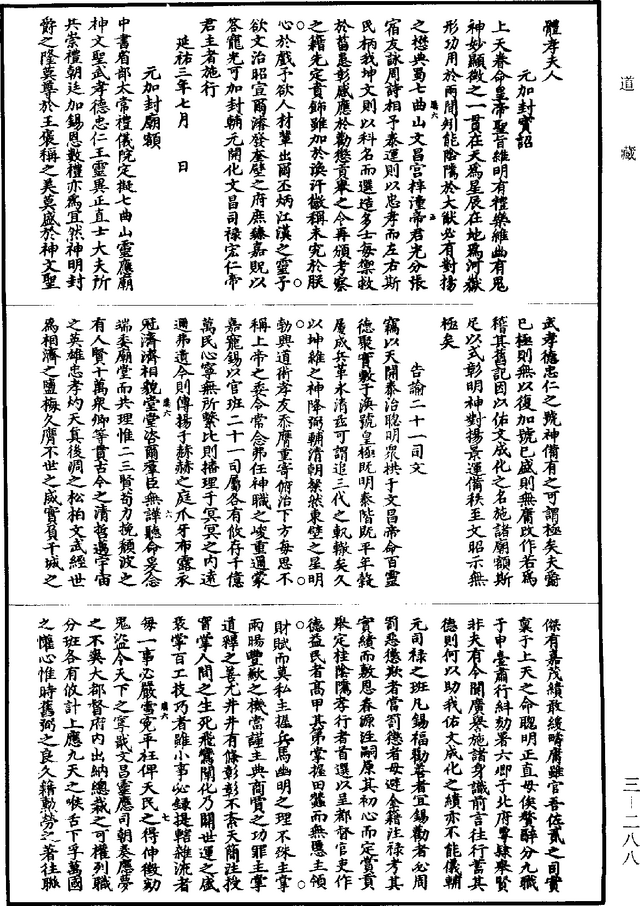 道藏
體孝夫人
元加封寶詔
上天眷命皇帝聖旨維明有禮樂維幽有鬼
神妙顯微之一貫在天爲星辰在地爲河嶽
形功用於兩間矧能陰騭於大猷必有對揚
之懋典蜀七曲山文昌宮梓潼帝君光分張
宿友詠周詩相予泰運則以忠孝而左右斯
民柄我坤文則以科名而選造多士每禦救
於菑患彰感應於勸懲貢舉之令再頒考察
之籍先定賁飾雖加於渙汗徽稱未究於朕
心於戲予欲人材輩出爾丕炳江漢之靈予
欲文治昭宣爾濬發奎壁之府庶臻嘉貺以
答寵光可加封輔元開化文昌司祿宏仁帝
君主者施行
延祐三年七月 日
元加封廟額
中書省部太常禮儀院定擬七曲山靈應廟
神文聖武孝德忠仁王靈異正直士大夫所
共崇禮朝廷加錫恩數禮亦爲宜然神明封
爵之隆莫尊於王褒稱之美莫盛於神文聖
武孝德忠仁之號神備有之可謂極矣夫爵
已極則無以復加號已盛則無庸改作若爲
稽其舊記因以佑文成化之名施諸廟額斯
足以式彰明神對揚景運備秩至文昭示無
極矣
告諭二十一司文
竊以天開泰治聰明衆拱于文昌帝命百靈
德聚實敷于渙號皇極既明泰階既平年穀
屢成兵革永消茲可謂追三代之軌轍矣久
以坤維之神降弼輔清朝粲然東壁之星明
勃興道術孝友忝膺重寄俯治下方每思不
稱上帝之委令常念弗任神職之峻重過蒙
嘉寵錫以官班二十一司屬各有攸存千億
萬民心寧無所繫比則播理于冥冥之内遠
邇弗遺今則傳揚于赫赫之庭爪牙布露承
冠濟濟相貌堂堂咨爾羣臣無譁聽命是念
端委廟堂而共理惟二三賢苟力挽頹波之
有人賢千萬衆卿等貫古今之清哲邁宇宙
之英雄忠孝灼天真後凋之松柏文武經世
爲相濟之鹽梅久膺不世之威實負干城之
傑有嘉茂績敢緩疇庸雖官吾佐貳之司實
稟于上天之命聰明正直毋俟贅辭分九職
于申臺肅行糾劾署六卿于北府畢隸舉賢
非夫有今開廣舉施諸身識前言往行蓄其
德則何以助我佑文成化之績亦不能儀輔
元司祿之班凡錫福勸善者宜錫勸者必周
罰惡懲欺者當罰德者毋避金籍注祿考其
實績而敷恩春源注嗣原其初心而定賞貢
耿定桂陰騭孝行者首選以呈都督官吏作
德益民者高甲其第掌握田蠶而無愿主領
財賦而莫私主握兵馬幽明之理不殊主掌
雨暘豐歉之機當謹主典商賈之功罪主掌
道釋之善尤井井有條彰彰不紊天簡注授
實掌人間之生死飛鸞開化乃關世運之盛
衰掌百工技巧者雖小事必録提轄雜流者
每一事必嚴雪冤平枉俾天民之得伸徵劾
鬼盜今天下之寧戢文昌靈應司朝奏應夢
之不爽大都督府内出納總裁之可權列職
分班各有攸計上應九天之喉舌下孚萬國
之懽心惟時舊弼之良久積勳勞之著往聯
三-二八八